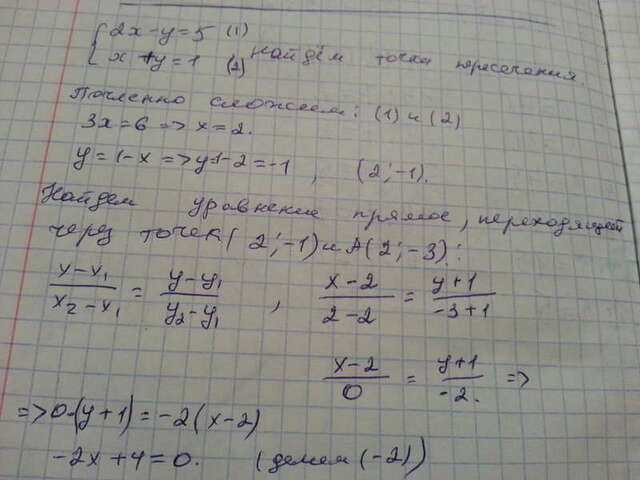 { 2x-y=5 (1)
x+y=1 (2) найдём точка пересечения.
Почленно сложем: (1) и (2)
3x=6 => x=2.
y=1-x => y=1-2=-1, (2;-1).
Найдем уравнение прямое, переходящей
через точек (2;-1) и A(2;-3):
x-x₁/x₂-x₁ = y-y₁/y₂-y₁, x-2/2-2 = y+1/-3+1
x-2/0 = y+1/-2. =>
=> 0·(y+1)=-2(x-2)
-2x+4=0. (делем (-2))